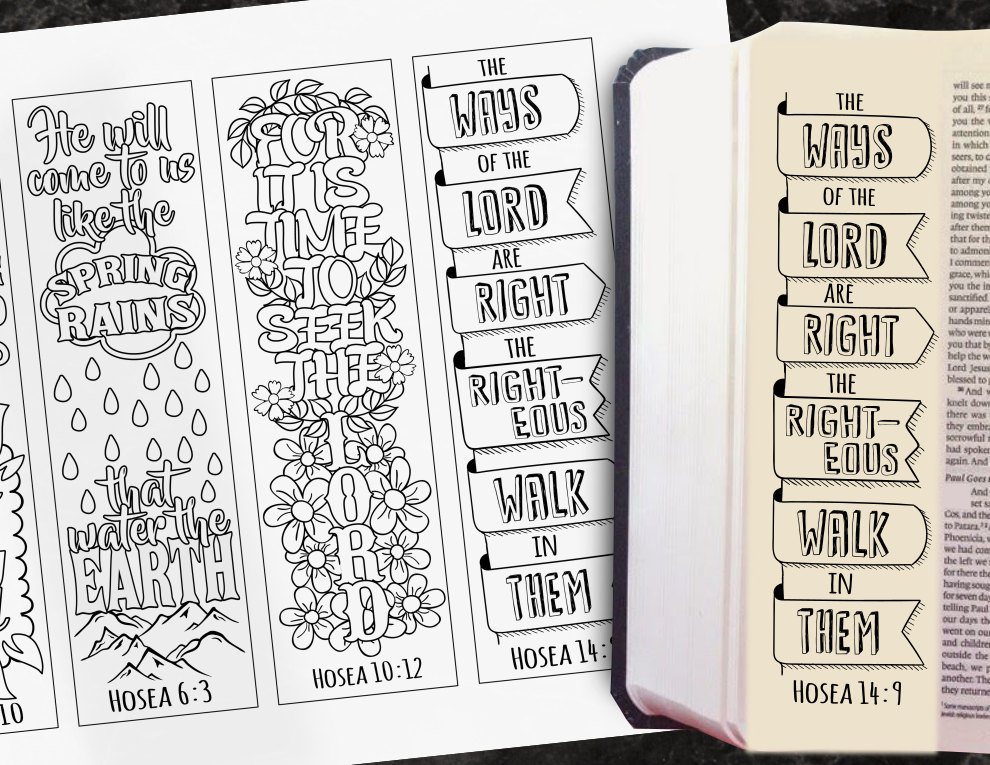 10
He will
come to us
like the
SPRING
RAINS
that
water the
EARTH
HOSEA 6:3
FOR
IT IS
TIME
TO
SEEK
THE
LORD
HOSEA 10:12
THE
WAYS
OF THE
LORD
ARE
RIGHT
THE
RIGHT-
EOUS
WALK
IN
THEM
HOSEA 14:
THE
WAYS
OF THE
LORD
ARE
RIGHT
THE
RIGHT-
EOUS
WALK
IN
THEM
HOSEA 14:9
will see
you this
of all,
you the
attention
in which
seers, to
obtained
after my
among
among
ing
after them
that for
to
I
grace,
you the
sanctified
or
hands
who were
you that by
help the
Lord
blessed to
And
knelt down
there was
they
sorrowful
had spoken
again. And
Paul Goes
And
set
Cos, and
to Patara.
Phoenicia,
we had
the left we
for there
having
for seven
telling Paul
our days
went on our
and children
outside the
beach, we
another.
they